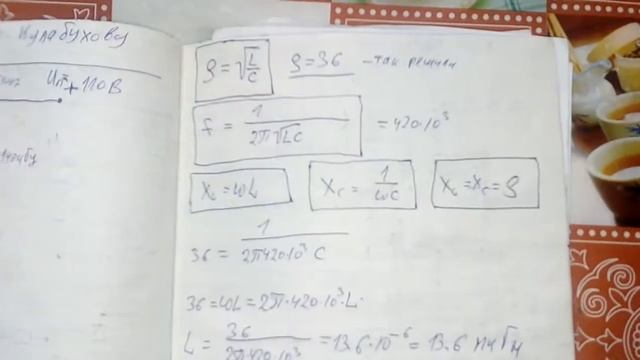 Кулабухову
Uп = + 110В
ρ = √L/C ρ = 36 – так решили
f = 1/2π√LC = 420·10³
X_L = ωL X_C = 1/ωC X_L = X_C = ρ
36 = 1/2π420·10³ C
36 = ωL = 2π·420·10³·L
L = 36/2π·420·10³ = 13.6·10⁻⁶ = 13.6 мкГн